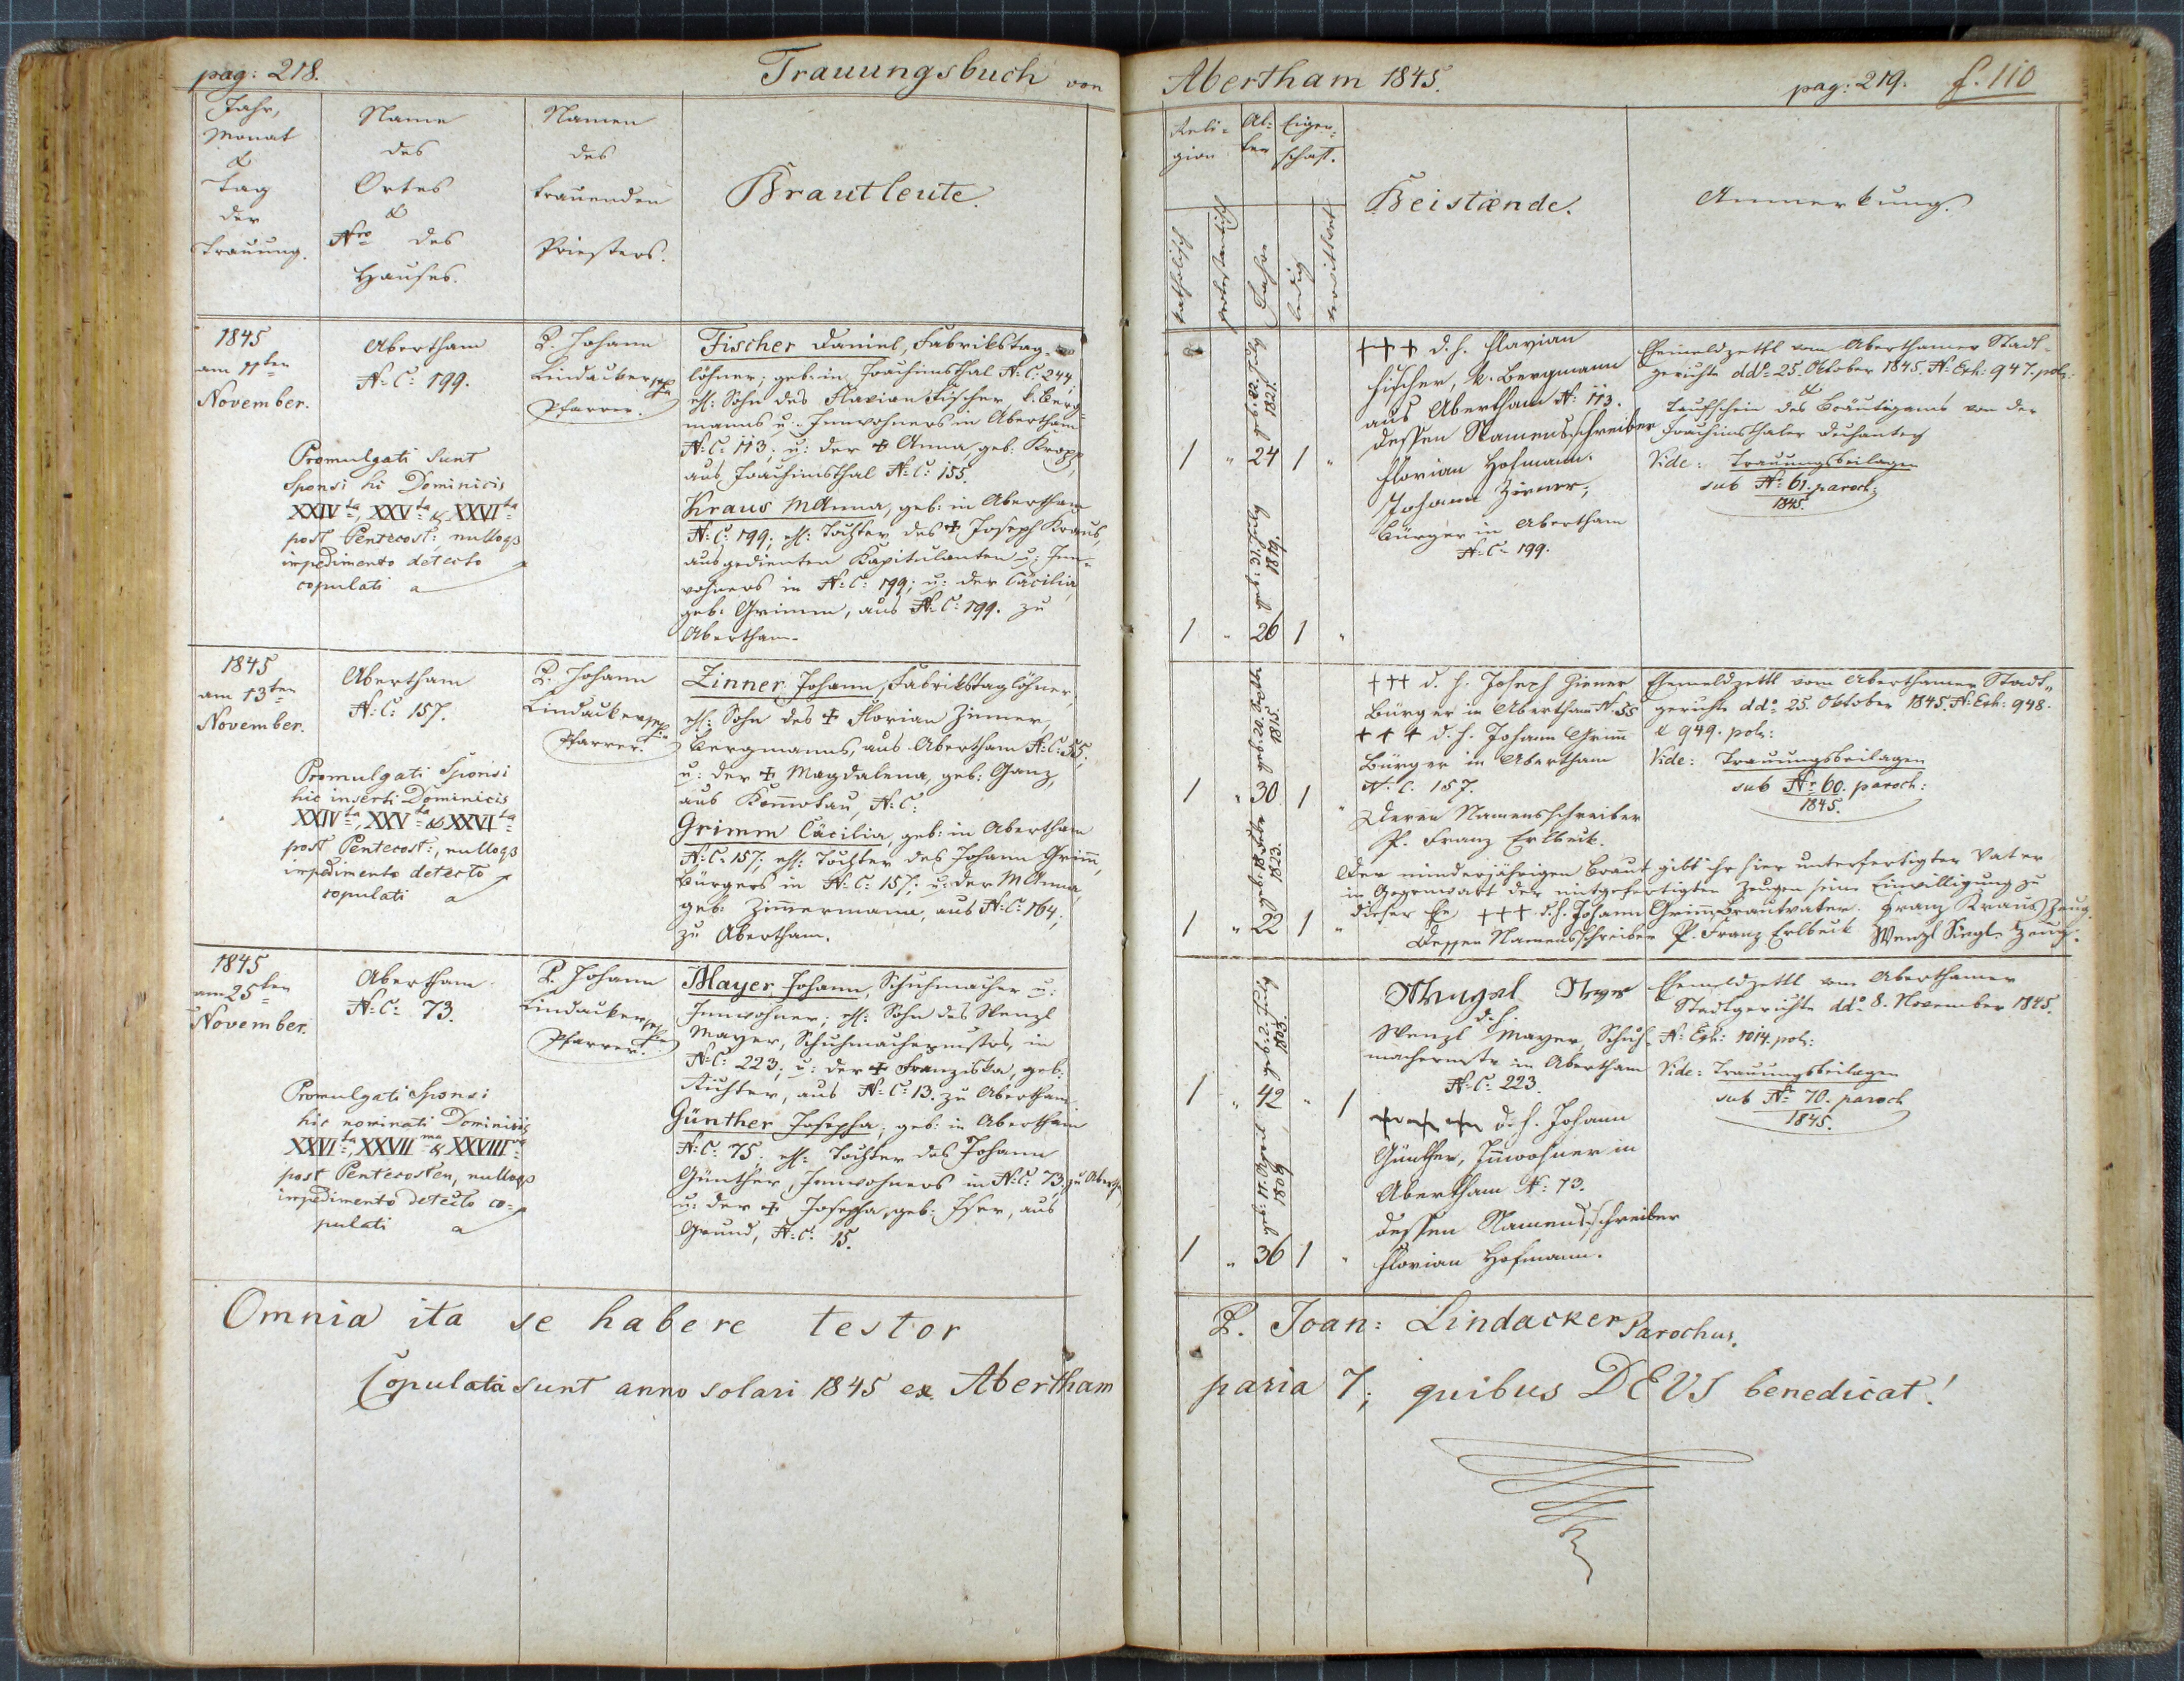 pag: 218.
Trauungsbuch von
Jahr,
Monat
&
Tag
der
Trauung.
Name
des
Ortes
&
Nro des
Hauses.
Namen
des
trauenden
Priesters.
Brautleute.
1845
am 11ten
November.
Abertham
N: C: 199.
P. Johann
Lindacker
Pfarrer.
Promulgati sunt
Sponsi hi Dominicis
XXIVta, XXVta & XXVIta
post Pentecost: nulloq3
impedimento detecto
copulati
Fischer Daniel, Fabrikstag-
löhner; geb: in Joachimsthal N: C: 244,
ehl: Sohn des Flavian Fischer, k. Berg-
manns u: Innwohners in Abertham
N: C: 113; u: der + Anna, geb: Kropp,
aus Joachimsthal N: C: 155.
Kraus MAnna, geb: in Abertham
N: C: 199; ehl: Tochter des + Joseph Kraus,
ausgedienten Kapitulanten u: Inn-
wohners in N: C: 199; u: der Cäcilia,
geb: Grimm, aus N: C: 199. zu
Abertham.
1845
am 13ten
November.
Abertham
N: C: 157.
P. Johann
Lindacker
Pfarrer.
Promulgati Sponsi
hic inserti Dominicis
XXIVta, XXVta & XXVIta
post Pentecost:, nulloq3
impedimento detecto
copulati
Zinner Johann, Fabrikstaglöhner,
ehl: Sohn des + Florian Zinner,
Bergmanns, aus Abertham N: C: 55;
u: der + Magdalena, geb: Ganz,
aus Kom̄otau, N: C:
Grimm Cäcilia, geb: in Abertham
N: C: 157; ehl: Tochter des Johann Grim̄,
Bürgers in N: C: 157; u: der MAnna,
geb: Zim̄ermann, aus N: C: 164;
zu Abertham.
1845
am 25ten
November.
Abertham
N: C: 73.
P. Johann
Lindacker
Pfarrer.
Promulgati Sponsi
hic nominati Dominicis
XXVIta, XXVIIma & XXVIIIva
post Pentecosten, nulloq3
impedimento detecto co-
pulati
Mayer Johann, Schuhmacher u:
Innwohner; ehl: Sohn des Wenzl
Mayer, Schuhmachermstrs, in
N: C: 223; u: der + Franziska, geb:
Richter, aus N: C: 13. zu Abertham.
Günther Josepha; geb: in Abertham
N: C: 75; ehl: Tochter des Johann
Günther, Innwohners in N: C: 73. zu Aberth.
u: der + Josepha, geb: Iser, aus
Grund, N: C: 15.
Omnia ita se habere testor
Copulata sunt anno solari 1845 ex Abertham
Abertham 1845.
pag: 219. f. 110
Reli-
gion
Al-
ter
Eigen-
schaft.
katholisch
protestantisch
Jahre
ledig
verwittwet
Beistænde.
Anmerkung.
1 " 24 1 "
1821
1 " 26 1 "
1819.
+++ d. h. Flavian
Fischer, k. Bergmann
aus Abertham N: 113.
dessen Namensschreiber
Florian Hofmann.
Johann Zinner,
Bürger in Abertham
N: C: 199.
Ehemeldzettl vom Aberthamer Stadt-
gerichte ddo 25. Oktober 1845. N: Exh: 947. pol:
&
Taufschein des Bräutigams von der
Joachimsthaler Dechantey
Vide: Trauungsbeilagen
sub N: 61. paroch:
1845.
1 " 30 1 "
1815.
1 " 22 1 "
1823.
+++ d. h. Joseph Zinner
Bürger in Abertham N: 55
+++ d. h. Johann Grim̄
Bürger in Abertham
N: C: 157.
Deren Namensschreiber
P. Franz Erlbeck.
Ehemeldzettl vom Aberthamer Stadt-
gerichte ddo 25. Oktober 1845. N: Exh: 948.
& 949. pol:
Vide: Trauungsbeilagen
sub No 60. paroch:
1845.
Der minderjährigen Braut gibt ihr hier unterfertigter Vater
in Gegenwart der mitgefertigten Zeugen seine Einwilligung zu
dieser Ehe +++ d. h. Johann Grim̄ Brautvater. Franz Kraus Zeug.
Dessen Namensschreiber P. Franz Erlbeck Wenzl Siegl Zeug.
1 " 42 " 1
1803.
1 " 36 1 "
1809
d. h.
Wenzl Mayer, Schuh-
machermstr in Abertham
N: C: 223.
+++ d. h. Johann
Günther, In̄wohner in
Abertham N: 73.
dessen Namensschreiber
Florian Hofmann.
Ehemeldzettl vom Aberthamer
Stadtgerichte ddo 8. November 1845.
N: Exh: 1014. pol:
Vide: Trauungsbeilagen
sub N: 70. paroch
1845.
P. Joan: Lindacker Parochus.
paria 7; quibus DEUS benedicat!